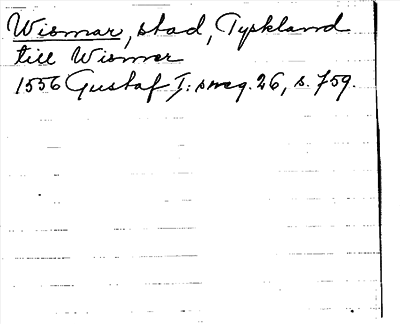 Wismar, stad, Tyskland
till Wismar
1556 Gustaf I:s reg. 26, s. 759.